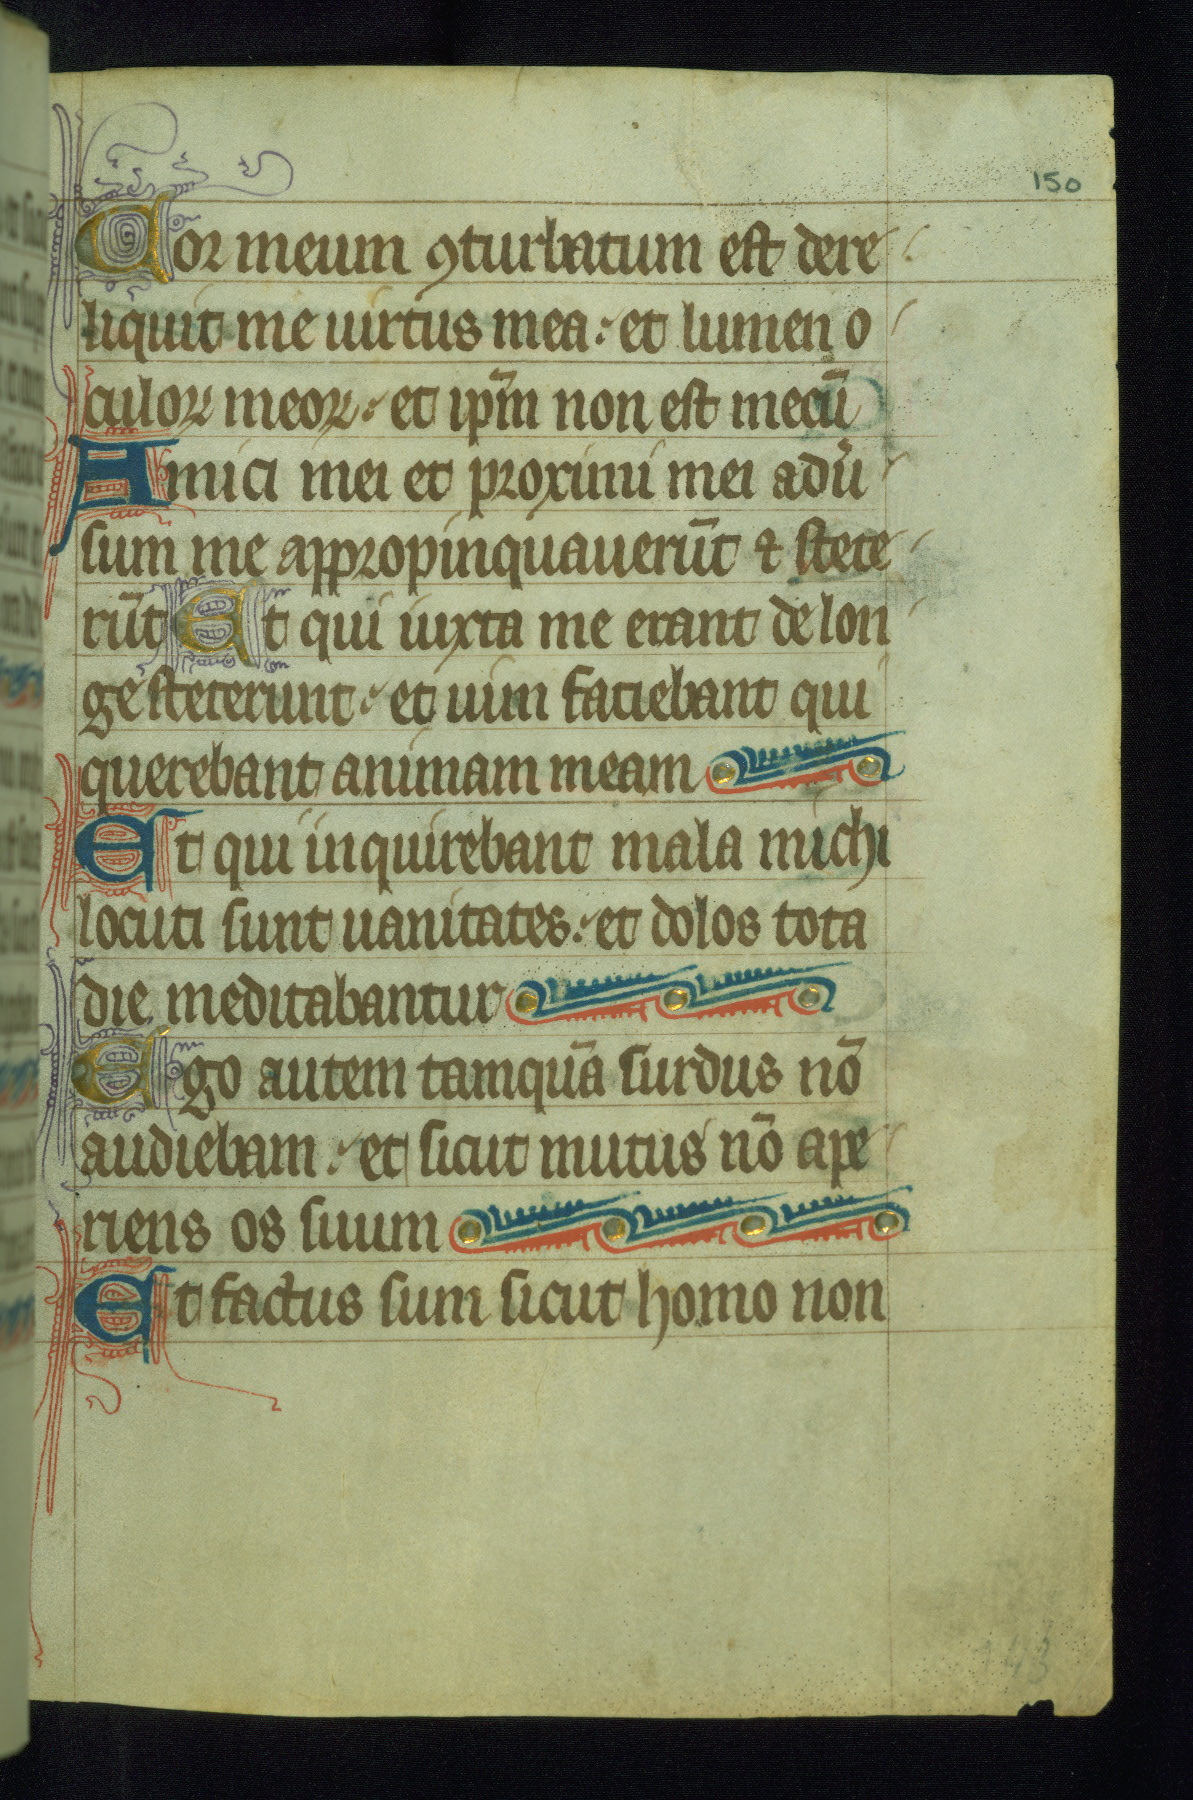 150
Cor meum ꝯturbatum est dere
liquit me uirtus mea : et lumen o
culoꝝ meoꝝ : et ip̄m non est mecū
Amici mei et proximi mei adū
sum me appropinquauerūt ⁊ stete
rūt Et qui iuxta me erant de lon
ge steterunt : et uim faciebant qui
querebant animam meam
Et qui inquirebant mala michi
locuti sunt uanitates : et dolos tota
die meditabantur
Ego autem tamquā surdus nō
audiebam : et sicut mutus nō ape
riens os suum
Et factus sum sicut homo non
143